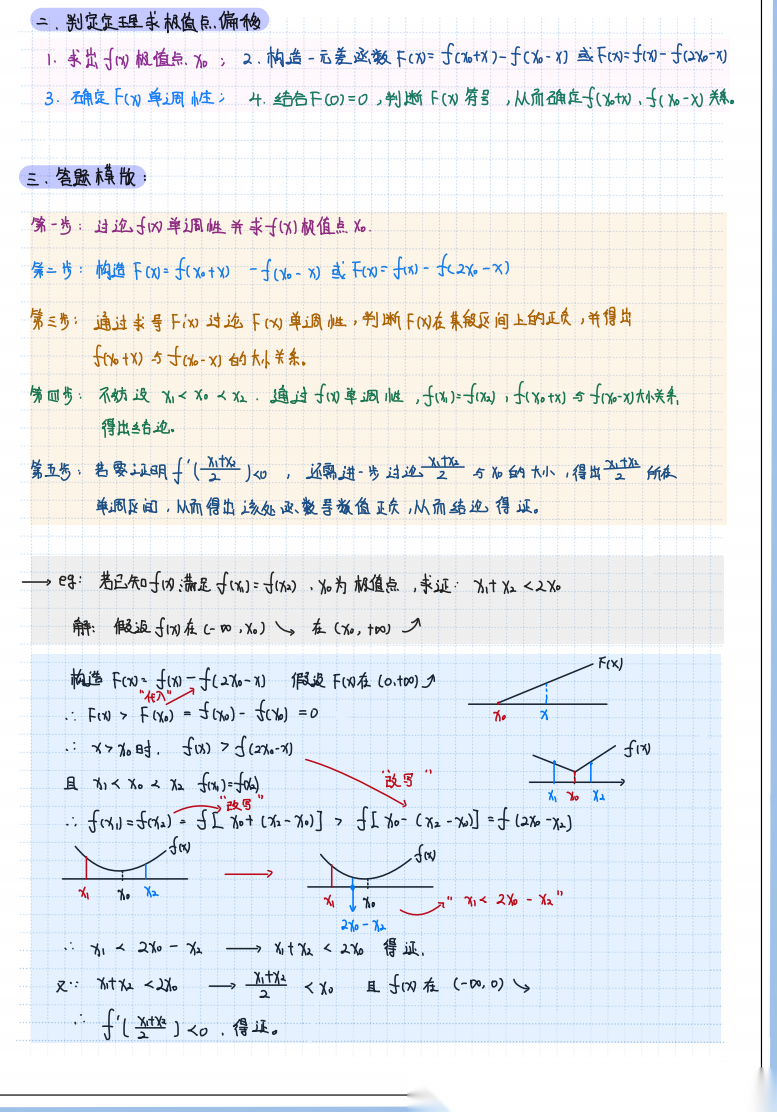 二. 判定定理求极值点偏移
1. 求出f(x)极值点x₀ ; 2. 构造一元差函数F(x)= f(x₀+x)-f(x₀-x) 或F(x)=f(x)-f(2x₀-x)
3. 确定F(x)单调性; 4. 结合F(0)=0 ,判断F(x)符号 ,从而确定f(x₀+x)、f(x₀-x)关系。
三. 答题模版:
第一步: 讨论f(x)单调性并求f(x)极值点x₀.
第二步: 构造F(x)=f(x₀+x) -f(x₀-x) 或F(x)=f(x)-f(2x₀-x)
第三步: 通过求导F'(x)讨论F(x)单调性,判断F(x)在某段区间上的正负,并得出
f(x₀+x)与f(x₀-x)的大小关系。
第四步: 不妨设 x₁<x₀<x₂. 通过f(x)单调性 ,f(x₁)=f(x₂) ,f(x₀+x)与f(x₀-x)大小关系,
得出结论。
第五步: 若要证明f'((x₁+x₂)/2)<0 , 还需进一步讨论(x₁+x₂)/2与x₀的大小,得出(x₁+x₂)/2所在
单调区间,从而得出该处函数导数值正负,从而结论得证。
→ eg: 若已知f(x)满足f(x₁)=f(x₂) . x₀为极值点 ,求证: x₁+x₂<2x₀
解: 假设f(x)在(-∞,x₀)↘ 在(x₀,+∞)↗
构造F(x)=f(x)-f(2x₀-x) 假设F(x)在(0,+∞)↗
F(x)
"代入"
∴ F(x) > F(x₀) = f(x₀)-f(x₀) =0
x₀ x
∴ x>x₀时, f(x)>f(2x₀-x)
f(x)
"改写"
且 x₁<x₀<x₂ f(x₁)=f(x₂)
x₁ x₀ x₂
"改写"
∴ f(x₁)=f(x₂) = f[x₀+(x₂-x₀)] > f[x₀-(x₂-x₀)] =f(2x₀-x₂)
f(x) → f(x)
x₁ x₀ x₂ x₁ x₀ "x₁<2x₀-x₂"
2x₀-x₂
∴ x₁ < 2x₀-x₂ → x₁+x₂<2x₀ 得证.
又∵ x₁+x₂<2x₀ → (x₁+x₂)/2 <x₀ 且f(x)在 (-∞,0)↘
∴ f'((x₁+x₂)/2)<0 . 得证。